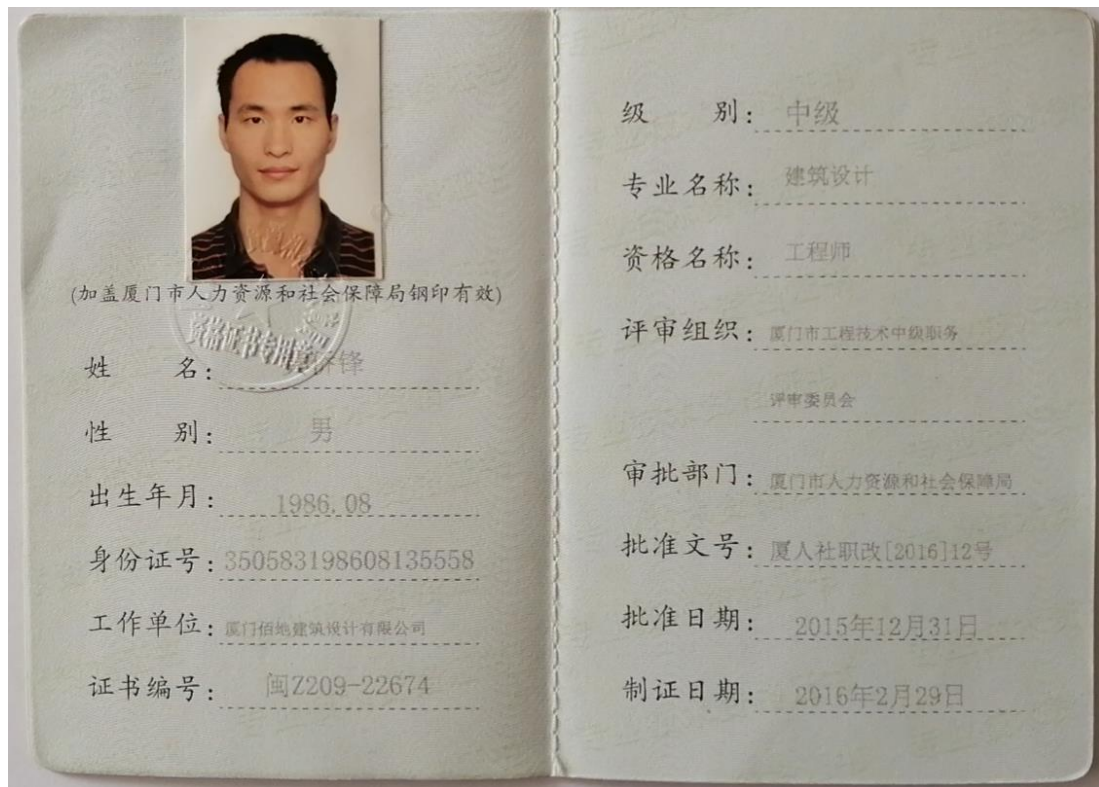 (加盖厦门市人力资源和社会保障局钢印有效)
资格证书专用章
姓 名： 锋
性 别： 男
出生年月： 1986.08
身份证号： 350583198608135558
工作单位： 厦门佰地建筑设计有限公司
证书编号： 闽Z209-22674
级 别： 中级
专业名称： 建筑设计
资格名称： 工程师
评审组织： 厦门市工程技术中级职务
评审委员会
审批部门： 厦门市人力资源和社会保障局
批准文号： 厦人社职改[2016]12号
批准日期： 2015年12月31日
制证日期： 2016年2月29日